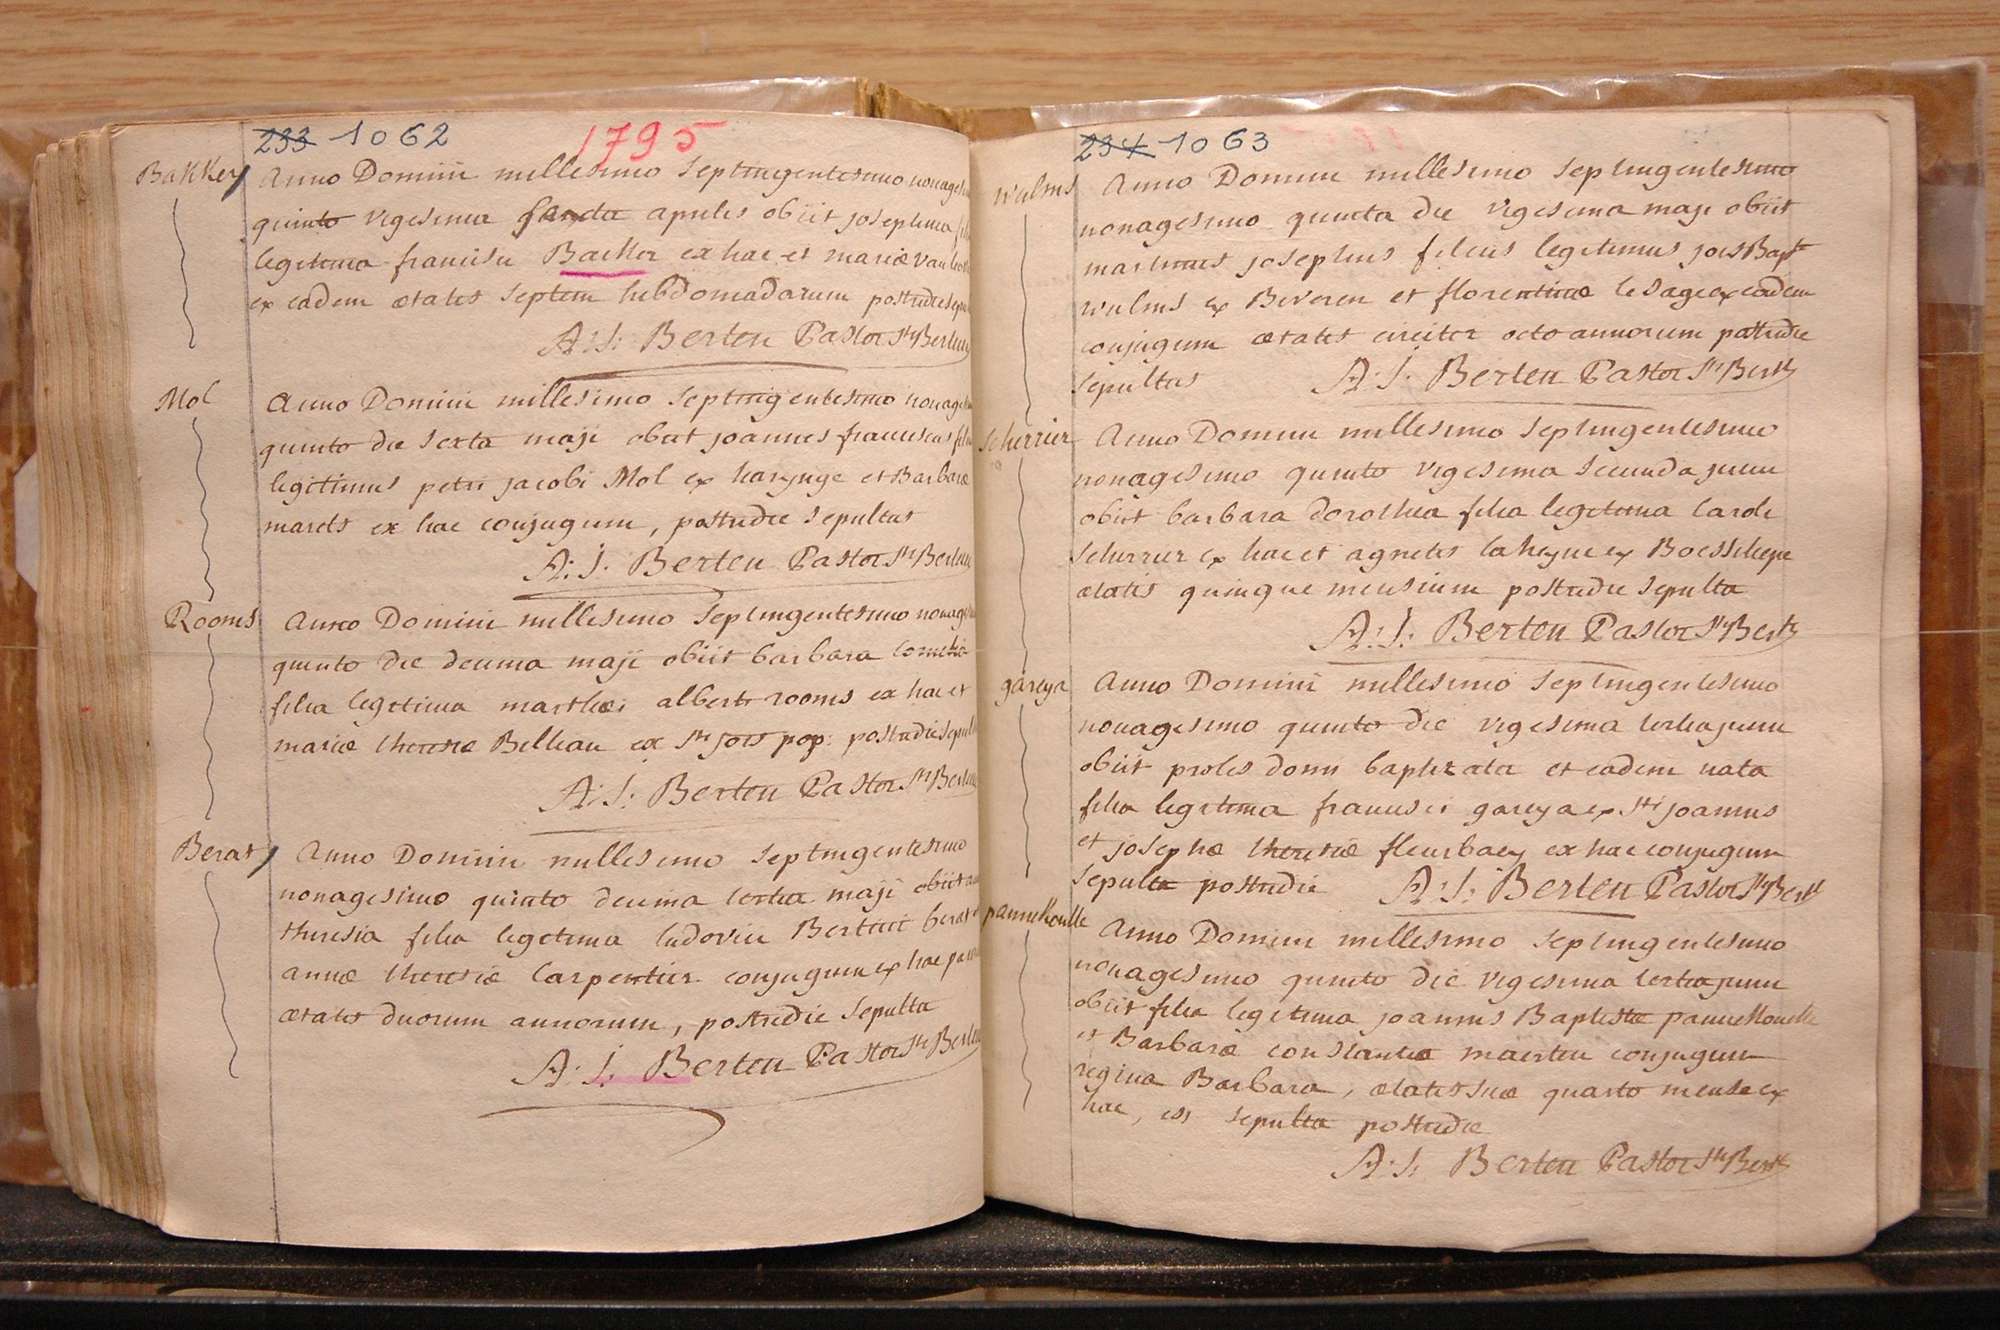 233 1062 1795
Bakker Anno Domini millesimo septingentesimo nonages
quinto vigesima aprilis obiit josephina
legitima francisci Backer ex hac et mariæ van
ex eadem ætatis septem hebdomadarum postridie
A: J: Berten Pastor Sti Bertini
Mol Anno Domini millesimo septingentesimo nonages
quinto die sexta maji obiit joannes franciscus
legitimus petri jacobi Mol ex harynge et Barbaræ
marets ex hac conjugum, postridie sepultus
A: J. Berten Pastor Sti Bertini
Rooms Anno Domini millesimo septingentesimo nonag
quinto die decima maji obiit barbara
filia legitima matthæi alberti rooms ex hac et
mariæ theresiæ Belleau ex Sti Jois pop: postridie
A: J: Berten Pastor Sti Bertini
Berat Anno Domini millesimo septingentesimo
nonagesimo quinto decima tertia maji obiit
theresia filia legitima ludovici Bertini berat
annæ theresiæ Carpentier conjugum ex hac
ætatis duorum annorum, postridie sepulta
A: J. Berten Pastor Sti Bertini
234 1063
wulms Anno Domini millesimo septingentesimo
nonagesimo quinta die vigesima maji obiit
martinus josephus filius legitimus jois Bapt
wulms ex Beveren et florentinæ lesage ex eadem
conjugum ætatis circiter octo annorum postridie
sepultus A. J. Berten Pastor Sti Bert
scherrier Anno Domini millesimo septingentesimo
nonagesimo quinto vigesima secunda junii
obiit barbara dorothea filia legitima Caroli
scherrier ex hac et agnetis laheyne ex Boesschepe
ætatis quinque mensium postridie sepulta
A: J: Berten Pastor Sti Bert
gareya Anno Domini millesimo septingentesimo
nonagesimo quinto die vigesima tertia junii
obiit proles domi baptizata et eadem nata
filia legitima francisci gareya ex Sti joannis
et josephæ theresiæ fleurbaey ex hac conjugum
sepulta postridie A: J: Berten Pastor Sti Bert
pannekoucke Anno Domini millesimo septingentesimo
nonagesimo quinto die vigesima tertia junii
obiit filia legitima joannis Baptistæ pannekoucke
et Barbaræ constantiæ maerten conjugum
regina Barbara, ætatis suæ quarto mense ex
hac, sepulta postridie
A: J. Berten Pastor Sti Bert